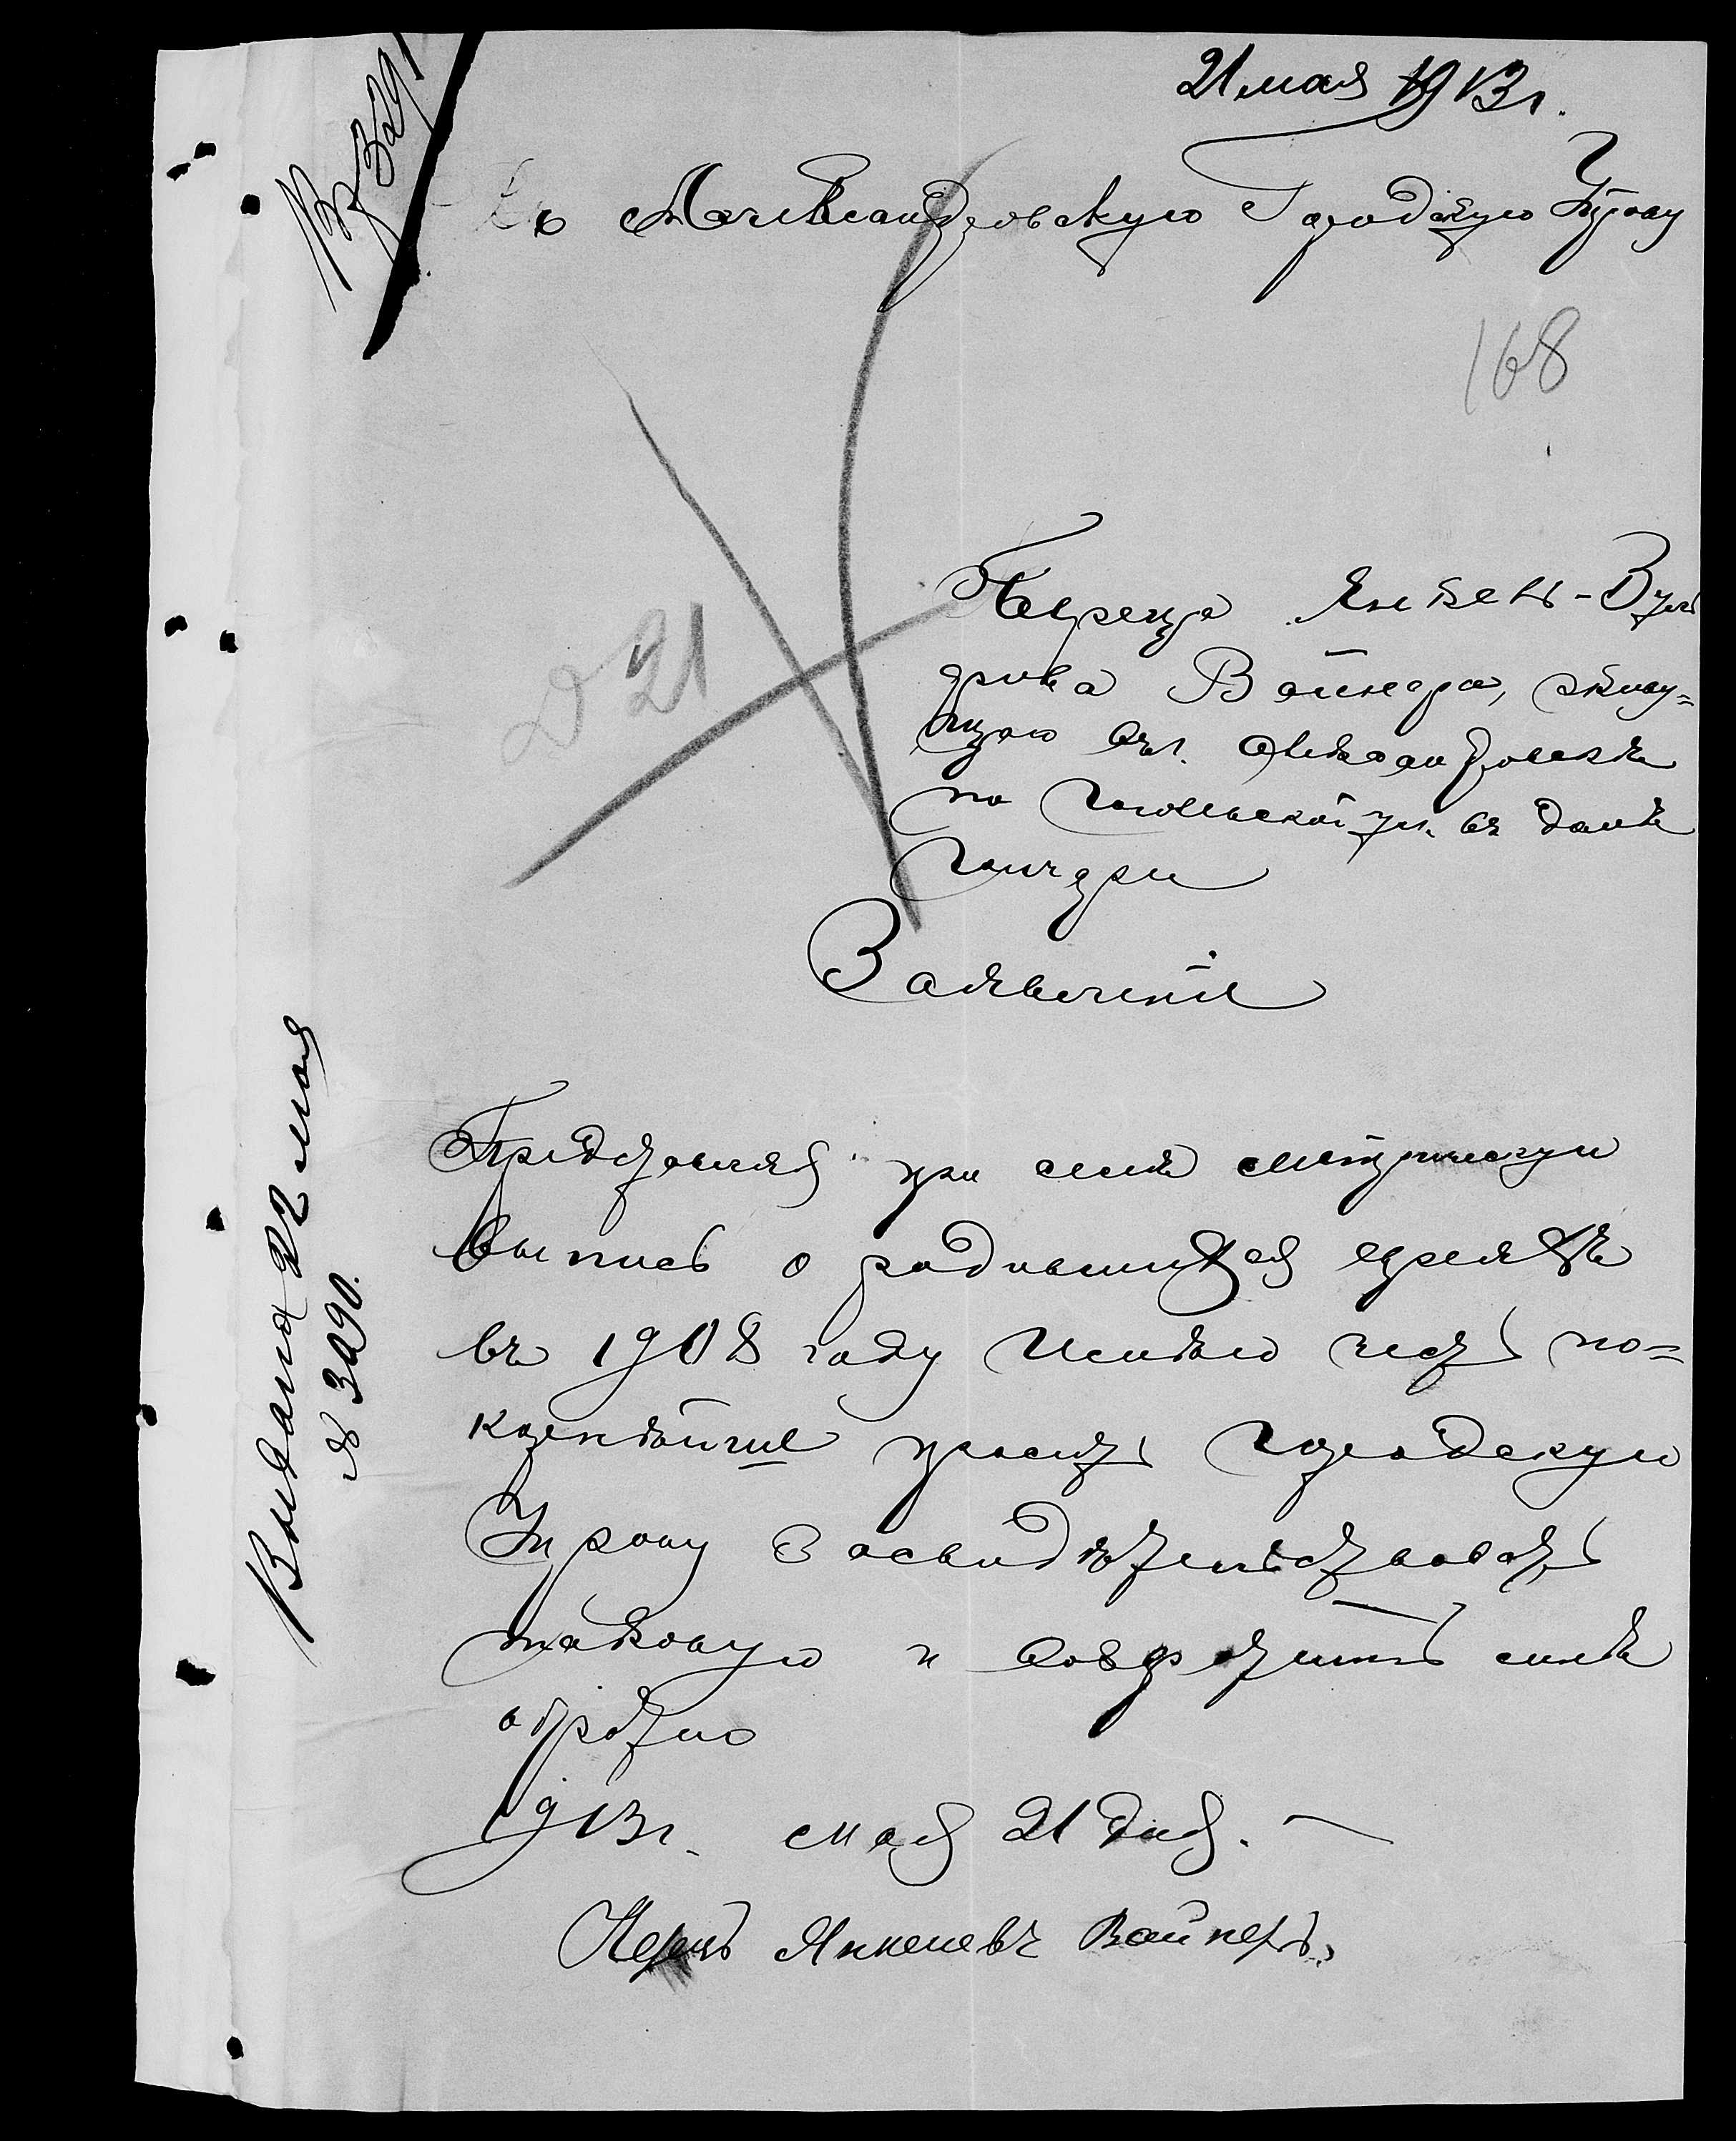 21 мая 1913 г.
№ 3291
Въ Александровскую Городскую Управу
168
Переца Янкель-Вуль
фова Вайнера, живу=
щаго въ г. Александровскѣ
по Гоголевской ул. въ домѣ
Д 21
Заявленіе
Представляя при семъ метрическую
выпись о родившихся евреяхъ
въ 1908 году имѣю честь по=
корнѣйше просить Городскую
Управу Засвидѣтельствовать
таковую и возвратить мнѣ
обратно
1913 г. мая 21 дня.
Перецъ Янкелевъ Вайнеръ
Выдана 22 мая
№ 3290.